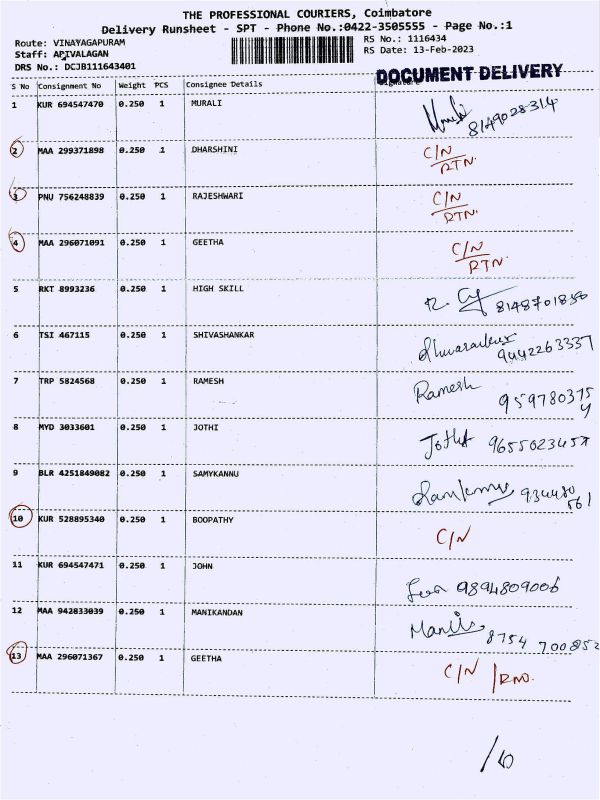 THE PROFESSIONAL COURIERS, Coimbatore
Delivery Runsheet - SPT - Phone No.:0422-3505555 - Page No.:1
Route: VINAYAGAPURAM
RS No.: 1116434
Staff: APIVALAGAN
RS Date: 13-Feb-2023
DRS No.: DCJB111643401
DOCUMENT DELIVERY
S No Consignment No Weight PCS Consignee Details Signature
1 KUR 694547470 0.250 1 MURALI
8149028314
2 MAA 299371898 0.250 1 DHARSHINI C/N
RTN.
3 PNU 756248839 0.250 1 RAJESHWARI C/N
RTN.
4 MAA 296071091 0.250 1 GEETHA C/N
RTN.
5 RKT 8993236 0.250 1 HIGH SKILL
8148701856
6 TSI 467115 0.250 1 SHIVASHANKAR
9442263337
7 TRP 5824568 0.250 1 RAMESH Ramesh
959780375
4
8 MYD 3033601 0.250 1 JOTHI Jothi 9655623457
9 BLR 4251849082 0.250 1 SAMYKANNU 934480
561
10 KUR 528895340 0.250 1 BOOPATHY C/N
11 KUR 694547471 0.250 1 JOHN 9894809006
12 MAA 942833039 0.250 1 MANIKANDAN
8754 700852
13 MAA 296071367 0.250 1 GEETHA C/N